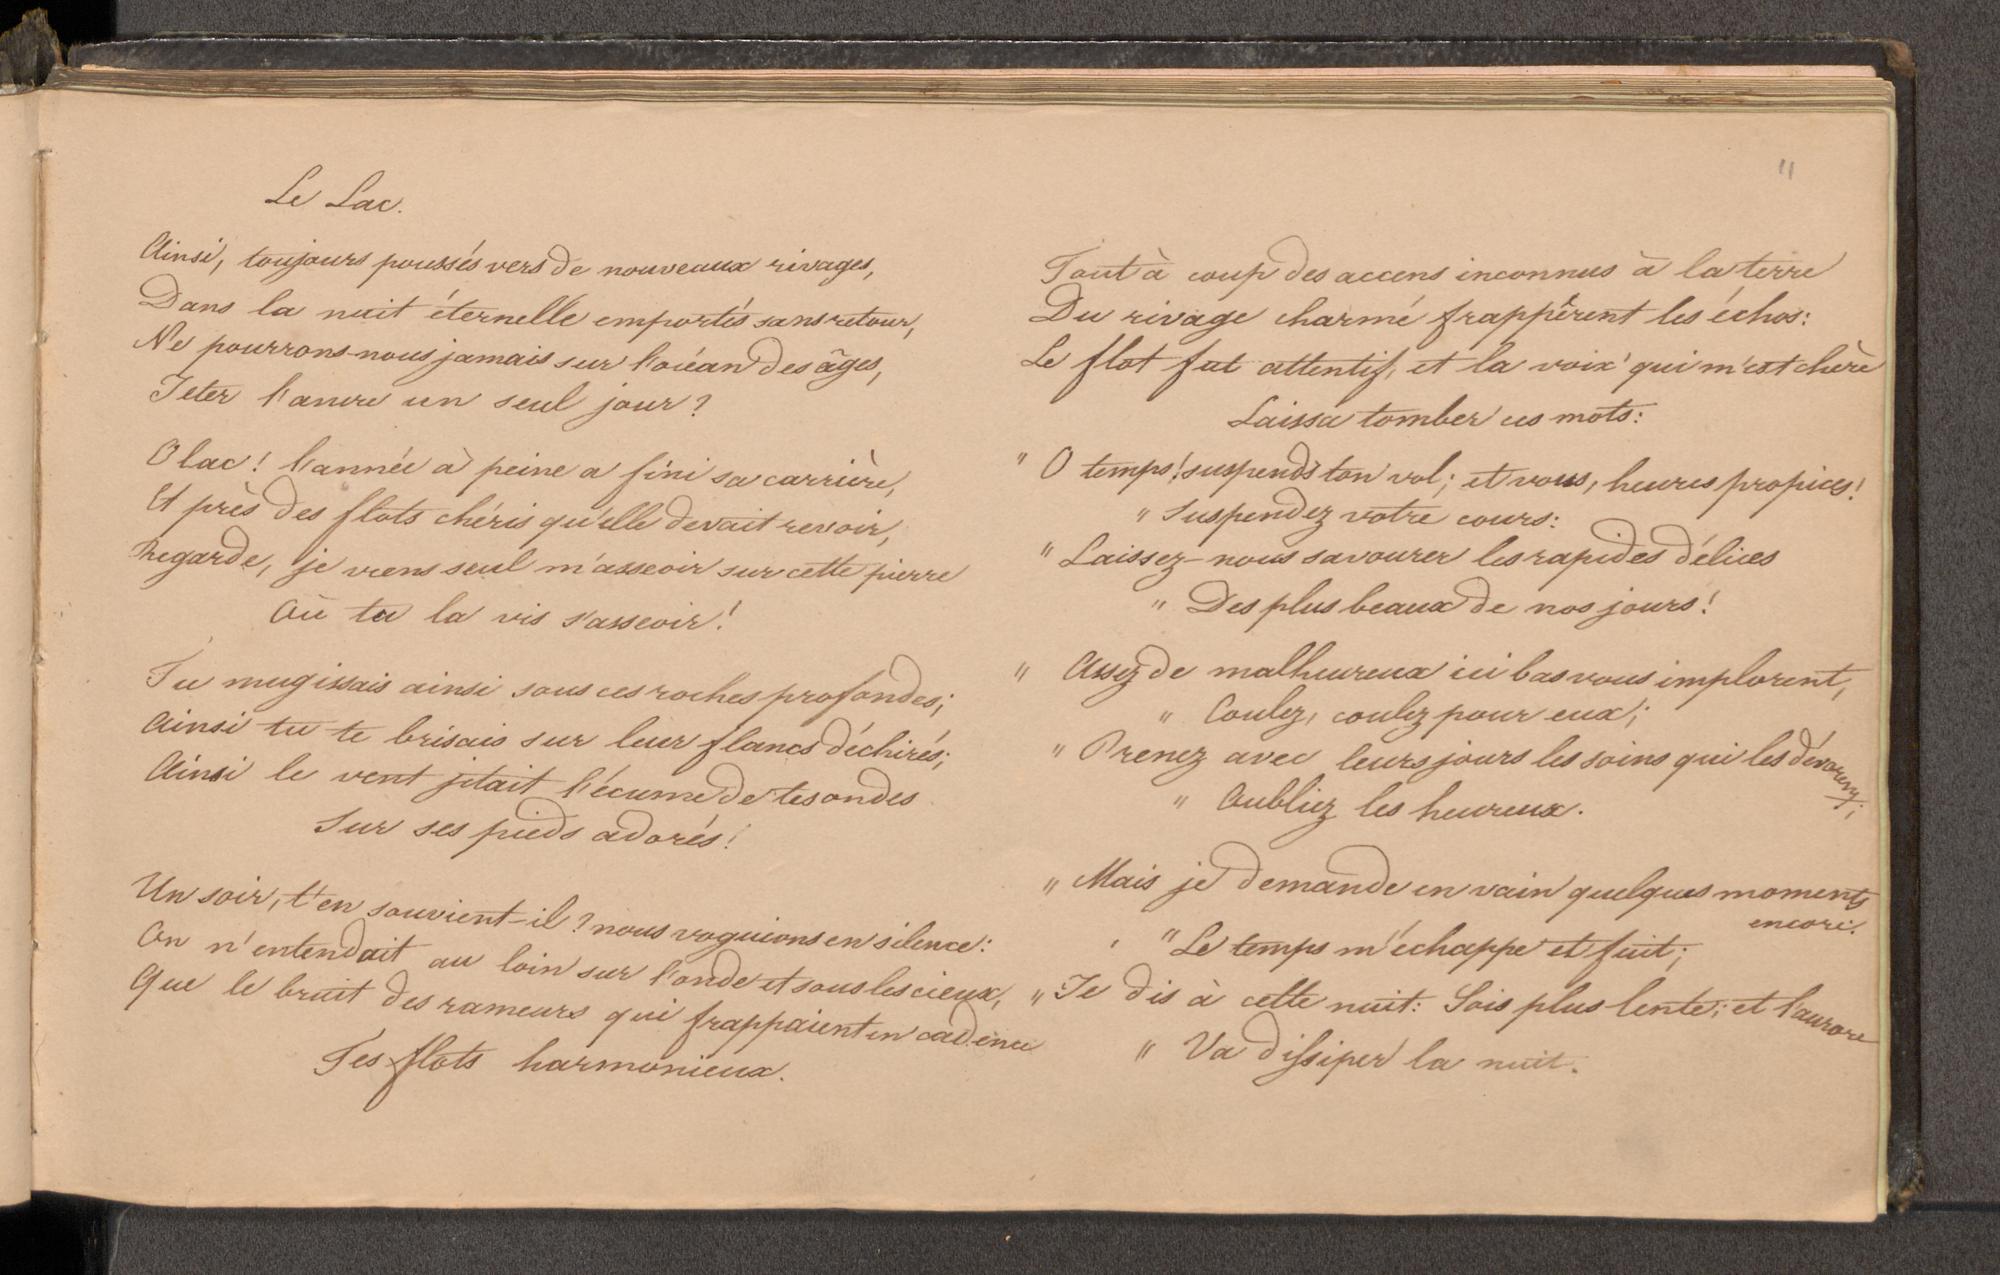 Le Lac.
Ainsi, toujours poussés vers de nouveaux rivages,
Dans la nuit éternelle emportés sans retour,
Ne pourrons-nous jamais sur l'océan des âges,
Jeter l'ancre un seul jour?
O lac! l'année à peine a fini sa carrière,
Et près des flots chéris qu'elle devait revoir,
Regarde, je viens seul m'asseoir sur cette pierre
Où tu la vis s'asseoir!
Tu mugissais ainsi sous ces roches profondes;
Ainsi tu te brisais sur leur flancs déchirés;
Ainsi le vent jetait l'écume de tes ondes
Sur ses pieds adorés!
Un soir, t'en souvient-il? nous voguions en silence:
On n'entendait au loin sur l'onde et sous les cieux,
Que le bruit des rameurs qui frappaient en cadence
Tes flots harmonieux.
11
Tout à coup des accens inconnus à la terre
Du rivage charmé frappèrent les échos:
Le flot fut attentif, et la voix qui m'est chère
Laissa tomber ces mots:
" O temps! suspends ton vol; et vous, heures propices!
" Suspendez votre cours:
" Laissez-nous savourer les rapides délices
" Des plus beaux de nos jours!
" Assez de malheureux ici bas vous implorent,
" Coulez, coulez pour eux;
" Prenez avec leurs jours les soins qui les dévorent;
" Oubliez les heureux.
" Mais je demande en vain quelques moments
encore.
" Le temps m'échappe et fuit;
" Je dis à cette nuit: Sois plus lente; et l'aurore
" Va dissiper la nuit.